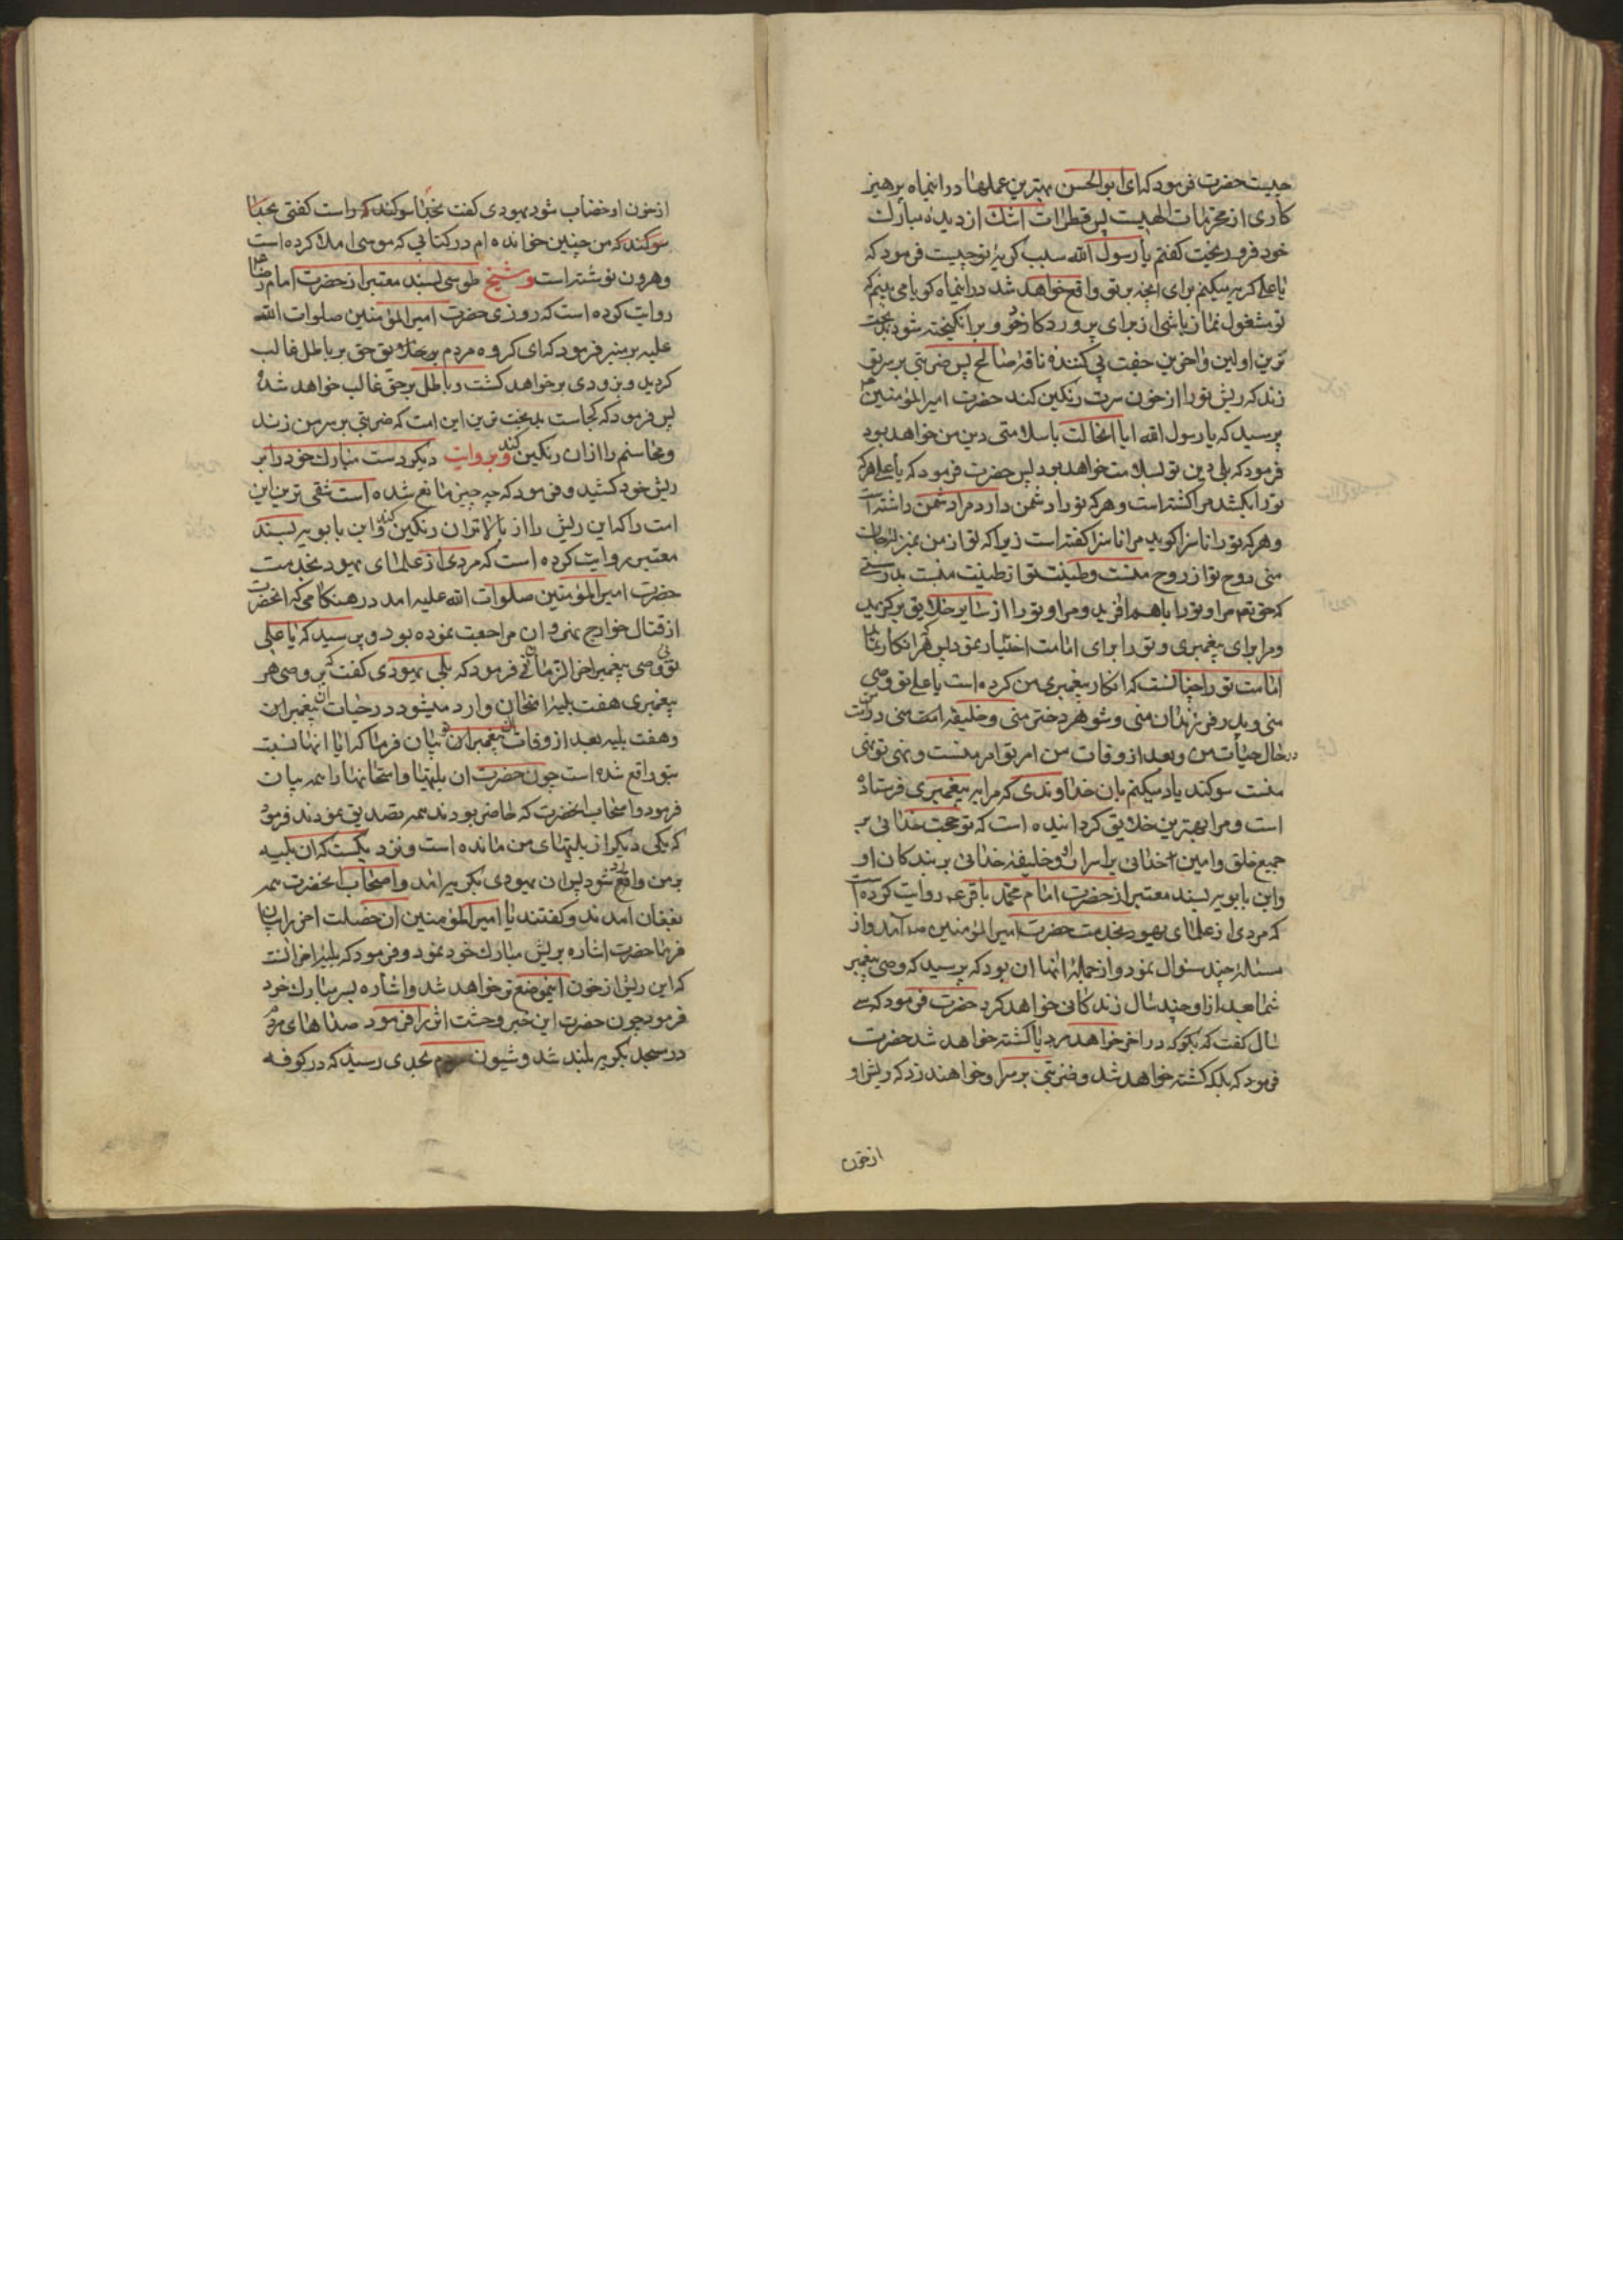 چیست حضرت فرمود که ای ابو الحسن بهترین عملها در اینماه پرهیز
کاری از محرمات الهیست پس قطرات اشک از دیده مبارک
خود فرو ریخت گفتم یا رسول الله سبب گریه تو چیست فرمود که
یا علی گریه میکنم برای انچه بر تو واقع خواهد شد در اینماه گویا می بینم که
تو مشغول نماز باشی از برای پروردکار خود و برانکیخته شود بدبخت
ترین اولین و اخرین جفت پی کننده ناقه صالح پس ضربتی بر سر تو
زند که ریش تو را از خون سرت رنکین کند حضرت امیر المؤمنین
پرسید که یا رسول الله ایا انحالت با سلامتی دین من خواهد بود
فرمود که بلی دین تو بسلامت خواهد بود پس حضرت فرمود که یا علی هرکه
تو را بکشد مرا کشته است و هر که تو را دشمن دارد مرا دشمن داشته است
و هر که تو را ناسزا کوید مرا ناسزا کفته است زیرا که تو از من بمنزله جان
منی روح تو از روح منست و طینت تو از طینت منست بدرستی
که حق تعم مرا و تو را با هم افرید و مرا و تو را از سایر خلایق برکزید
و مرا برای پیغمبری و تو را برای امامت اختیار نمود پس هر که انکار نماید
امامت تو را چنانست که انکار پیغمبری من کرده است یا علی تو وصی
منی و پدر فرزندان منی و شوهر دختر منی و خلیفه منی در امت من
در حال حیات من و بعد از وفات من امر تو امر منست و نهی تو نهی
منست سوکند یاد میکنم بان خداوندی که مرا به پیغمبری فرستاده
است و مرا بهترین خلایق کردانیده است که تو حجت خدائی بر
جمیع خلق و امین خدائی بر اسرار او و خلیفه خدائی بر بندکان او
و ابن بابویه بسند معتبر از حضرت امام محمد باقر عم روایت کرده است
که مردی از علمای یهود بخدمت حضرت امیر المؤمنین آمد و از
مسئله چند سئوال نمود و از جمله انها ان بود که پرسید که وصی پیغمبر
شما بعد از او چند سال زندکانی خواهد کرد حضرت فرمود که سی
سال کفت که بکو که در اخر خواهد مرد یا کشته خواهد شد حضرت
فرمود که بلکه کشته خواهد شد و ضربتی بر سر او خواهند زد که ریش او
از خون
از خون او خضاب شود یهودی کفت بخدا سوکند که راست کفتی بخدا
سوکند که من چنین خوانده ام در کتابی که موسی املا کرده است
و هرون نوشته است و شیخ طوسی بسند معتبر از حضرت امام رضا
روایت کرده است که روزی حضرت امیر المؤمنین صلوات الله
علیه بر منبر فرمود که ای کروه مردم حق بر باطل غالب
کردید و بزودی بر خواهد کشت و باطل بر حق غالب خواهد شد
پس فرمود که کجاست بدبخت ترین این امت که ضربتی بر سر من زند
و محاسنم را از ان رنکین کند و بروایت دیکر دست مبارک خود را بر
ریش خود کشید و فرمود که چه چیز مانع شده است شقی ترین این
امت را که این ریش را از بالاتر ان رنکین کند و ابن بابویه بسند
معتبر روایت کرده است که مردی از علمای یهود بخدمت
حضرت امیر المؤمنین صلوات الله علیه امد در هنکامی که انحضرت
از قتال خوارج نهروان مراجعت نموده بود و پرسید که یا علی
توئی وصی پیغمبر اخر الزمان فرمود که بلی یهودی کفت که بر وصی هر
پیغمبری هفت بلیه امتحان وارد میشود در حیات ان پیغمبران
و هفت بلیه بعد از وفات ان پیغمبران بیان فرما که ایا انها نسبت
بتو واقع شده است چون حضرت ان بلیتها و امتحانها را همه بیان
فرمود و اصحاب انحضرت که حاضر بودند همه تصدیق نمودند فرمود
که یکی دیکر از بلیتهای من مانده است و نزدیکست که ان بلیه
بر من واقع شود پس ان یهودی بکریه امد و اصحاب انحضرت همه
بفغان امدند و کفتند یا امیر المؤمنین ان خصلت اخر را بیان
فرما حضرت اشاره بریش مبارک خود نمود و فرمود که بلیه اخر انست
که این ریش از خون اینموضع تر خواهد شد و اشاره بسر مبارک خود
فرمود چون حضرت این خبر وحشت اثر را فرمود صداهای مردم
در مسجد بکریه بلند شد و شیون مردم بحدی رسید که در کوفه